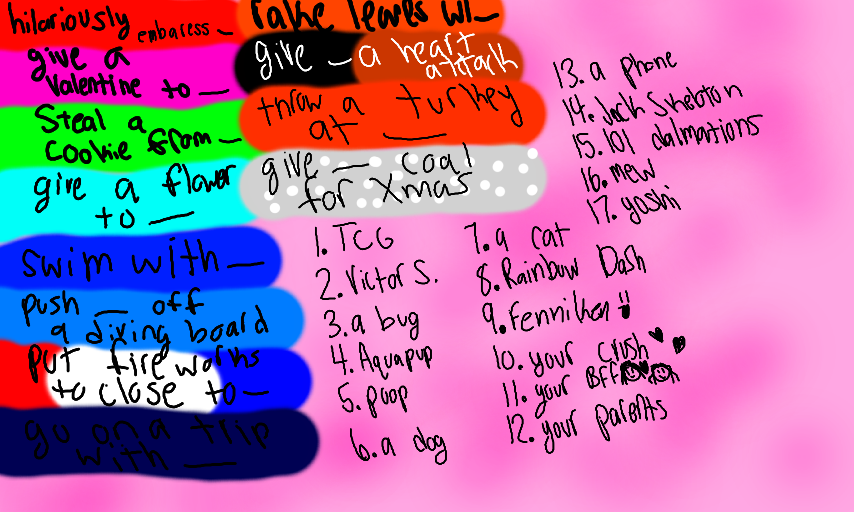 hilariously embaress _
give a
valentine to _
Steal a
cookie from _
give a flower
to _
swim with _
push _ off
a diving board
put fire works
to close to _
go on a trip
with _
rake leaves w/ _
give _ a heart
attack
throw a turkey
at _
give _ coal
for Xmas
1. TCG
2. Victor S.
3. a bug
4. Aquapup
5. poop
6. a dog
7. a cat
8. Rainbow Dash
9. Fenniken
10. your crush
11. your BFF
12. your parents
13. a phone
14. Jack Skeleton
15. 101 dalmations
16. mew
17. yoshi